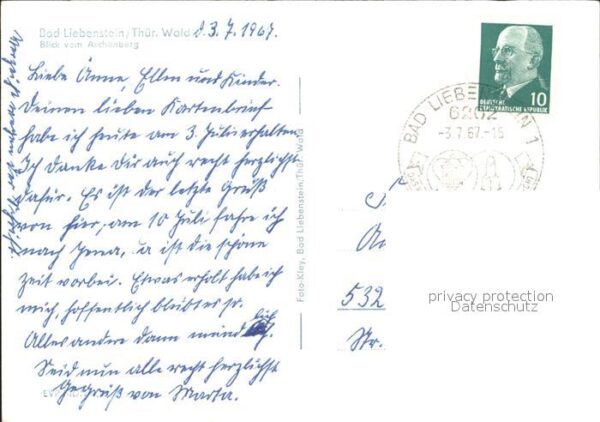 Bad Liebenstein/Thür. Wald d. 3. 7. 1967.
Blick vom Aschenberg
Liebe Änne, Ellen und Kinder.
Deinen lieben Kartenbrief
habe ich heute am 3. Juli erhalten
Ich danke Dir auch recht herzlichst
dafür. Es ist der letzte Gruß
von hier, am 10 Juli fahre ich
nach Jena, u ist die schöne
Zeit vorbei. Etwas erholt habe ich
mich, hoffentlich bleibt es so.
Alles andere dann mündlich.
Seid nun alle recht herzlichst
Gegrüß von Marta.
Foto-Kley, Bad Liebenstein/Thür. Wald
DEUTSCHE
DEMOKRATISCHE REPUBLIK
10
BAD LIEBENSTEIN 1
6202
-3.7.67.-15
532
Str.
privacy protection
Datenschutz